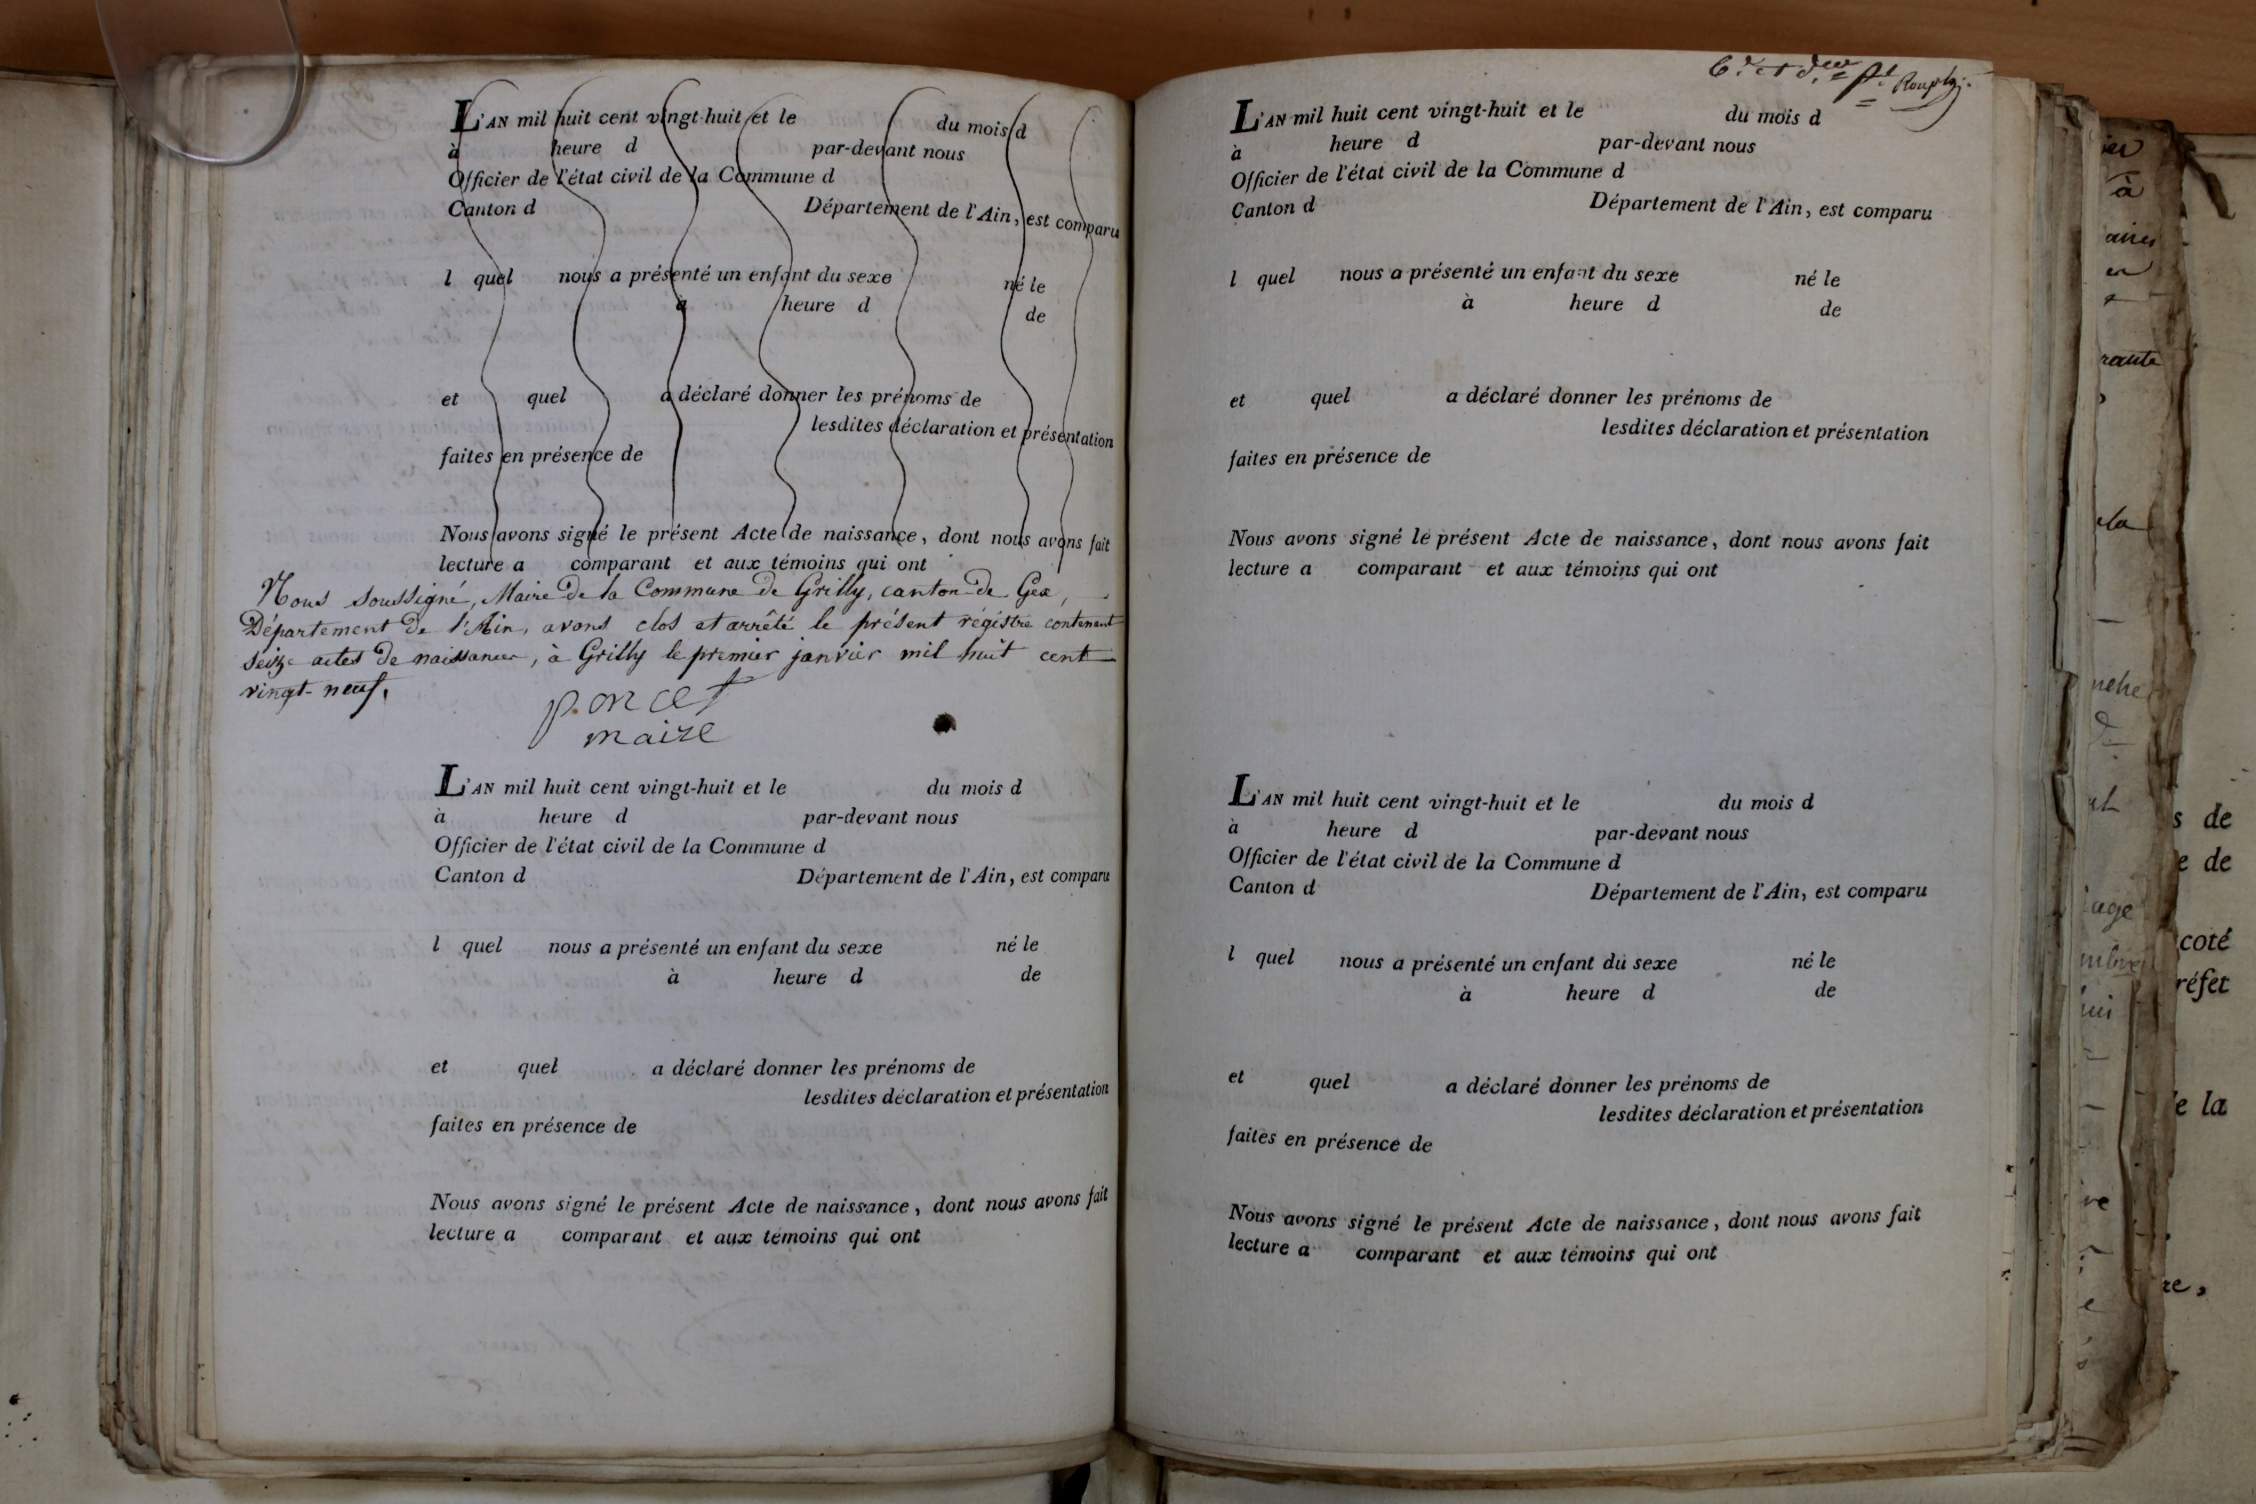 L'AN mil huit cent vingt-huit et le du mois d
à heure d par-devant nous
Officier de l'état civil de la Commune d
Canton d Département de l'Ain, est comparu
l quel nous a présenté un enfant du sexe né le
à heure d de
et quel a déclaré donner les prénoms de
lesdites déclaration et présentation
faites en présence de
Nous avons signé le présent Acte de naissance, dont nous avons fait
lecture a comparant et aux témoins qui ont
Nous soussigné, Maire de la Commune de Grilly, canton de Gex,
Département de l'Ain, avons clos et arrêté le présent régistre contenant
seize actes de naissances, à Grilly le premier janvier mil huit cent
vingt-neuf.
poncet
maire
L'AN mil huit cent vingt-huit et le du mois d
à heure d par-devant nous
Officier de l'état civil de la Commune d
Canton d Département de l'Ain, est comparu
l quel nous a présenté un enfant du sexe né le
à heure d de
et quel a déclaré donner les prénoms de
lesdites déclaration et présentation
faites en présence de
Nous avons signé le présent Acte de naissance, dont nous avons fait
lecture a comparant et aux témoins qui ont
6.e et d.er
L'AN mil huit cent vingt-huit et le du mois d
à heure d par-devant nous
Officier de l'état civil de la Commune d
Canton d Département de l'Ain, est comparu
l quel nous a présenté un enfant du sexe né le
à heure d de
et quel a déclaré donner les prénoms de
lesdites déclaration et présentation
faites en présence de
Nous avons signé le présent Acte de naissance, dont nous avons fait
lecture a comparant et aux témoins qui ont
L'AN mil huit cent vingt-huit et le du mois d
à heure d par-devant nous
Officier de l'état civil de la Commune d
Canton d Département de l'Ain, est comparu
l quel nous a présenté un enfant du sexe né le
à heure d de
et quel a déclaré donner les prénoms de
lesdites déclaration et présentation
faites en présence de
Nous avons signé le présent Acte de naissance, dont nous avons fait
lecture a comparant et aux témoins qui ont
à
rante
la
s de
e de
coté
réfet
e la
re,